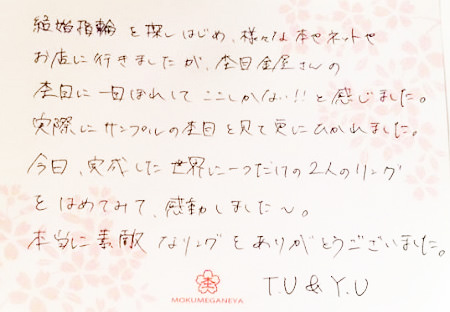 結婚指輪を探しはじめ、様々な本やネットや
お店に行きましたが、杢目金屋さんの
杢目に一目ぼれして ここしかない!! と感じました。
実際にサンプルの杢目を見て更にひかれました。
今日、完成した世界に一つだけの2人のリング
をはめてみて、感動しました〜。
本当に素敵なリングをありがとうございました。
T.U & Y.U
MOKUMEGANEYA